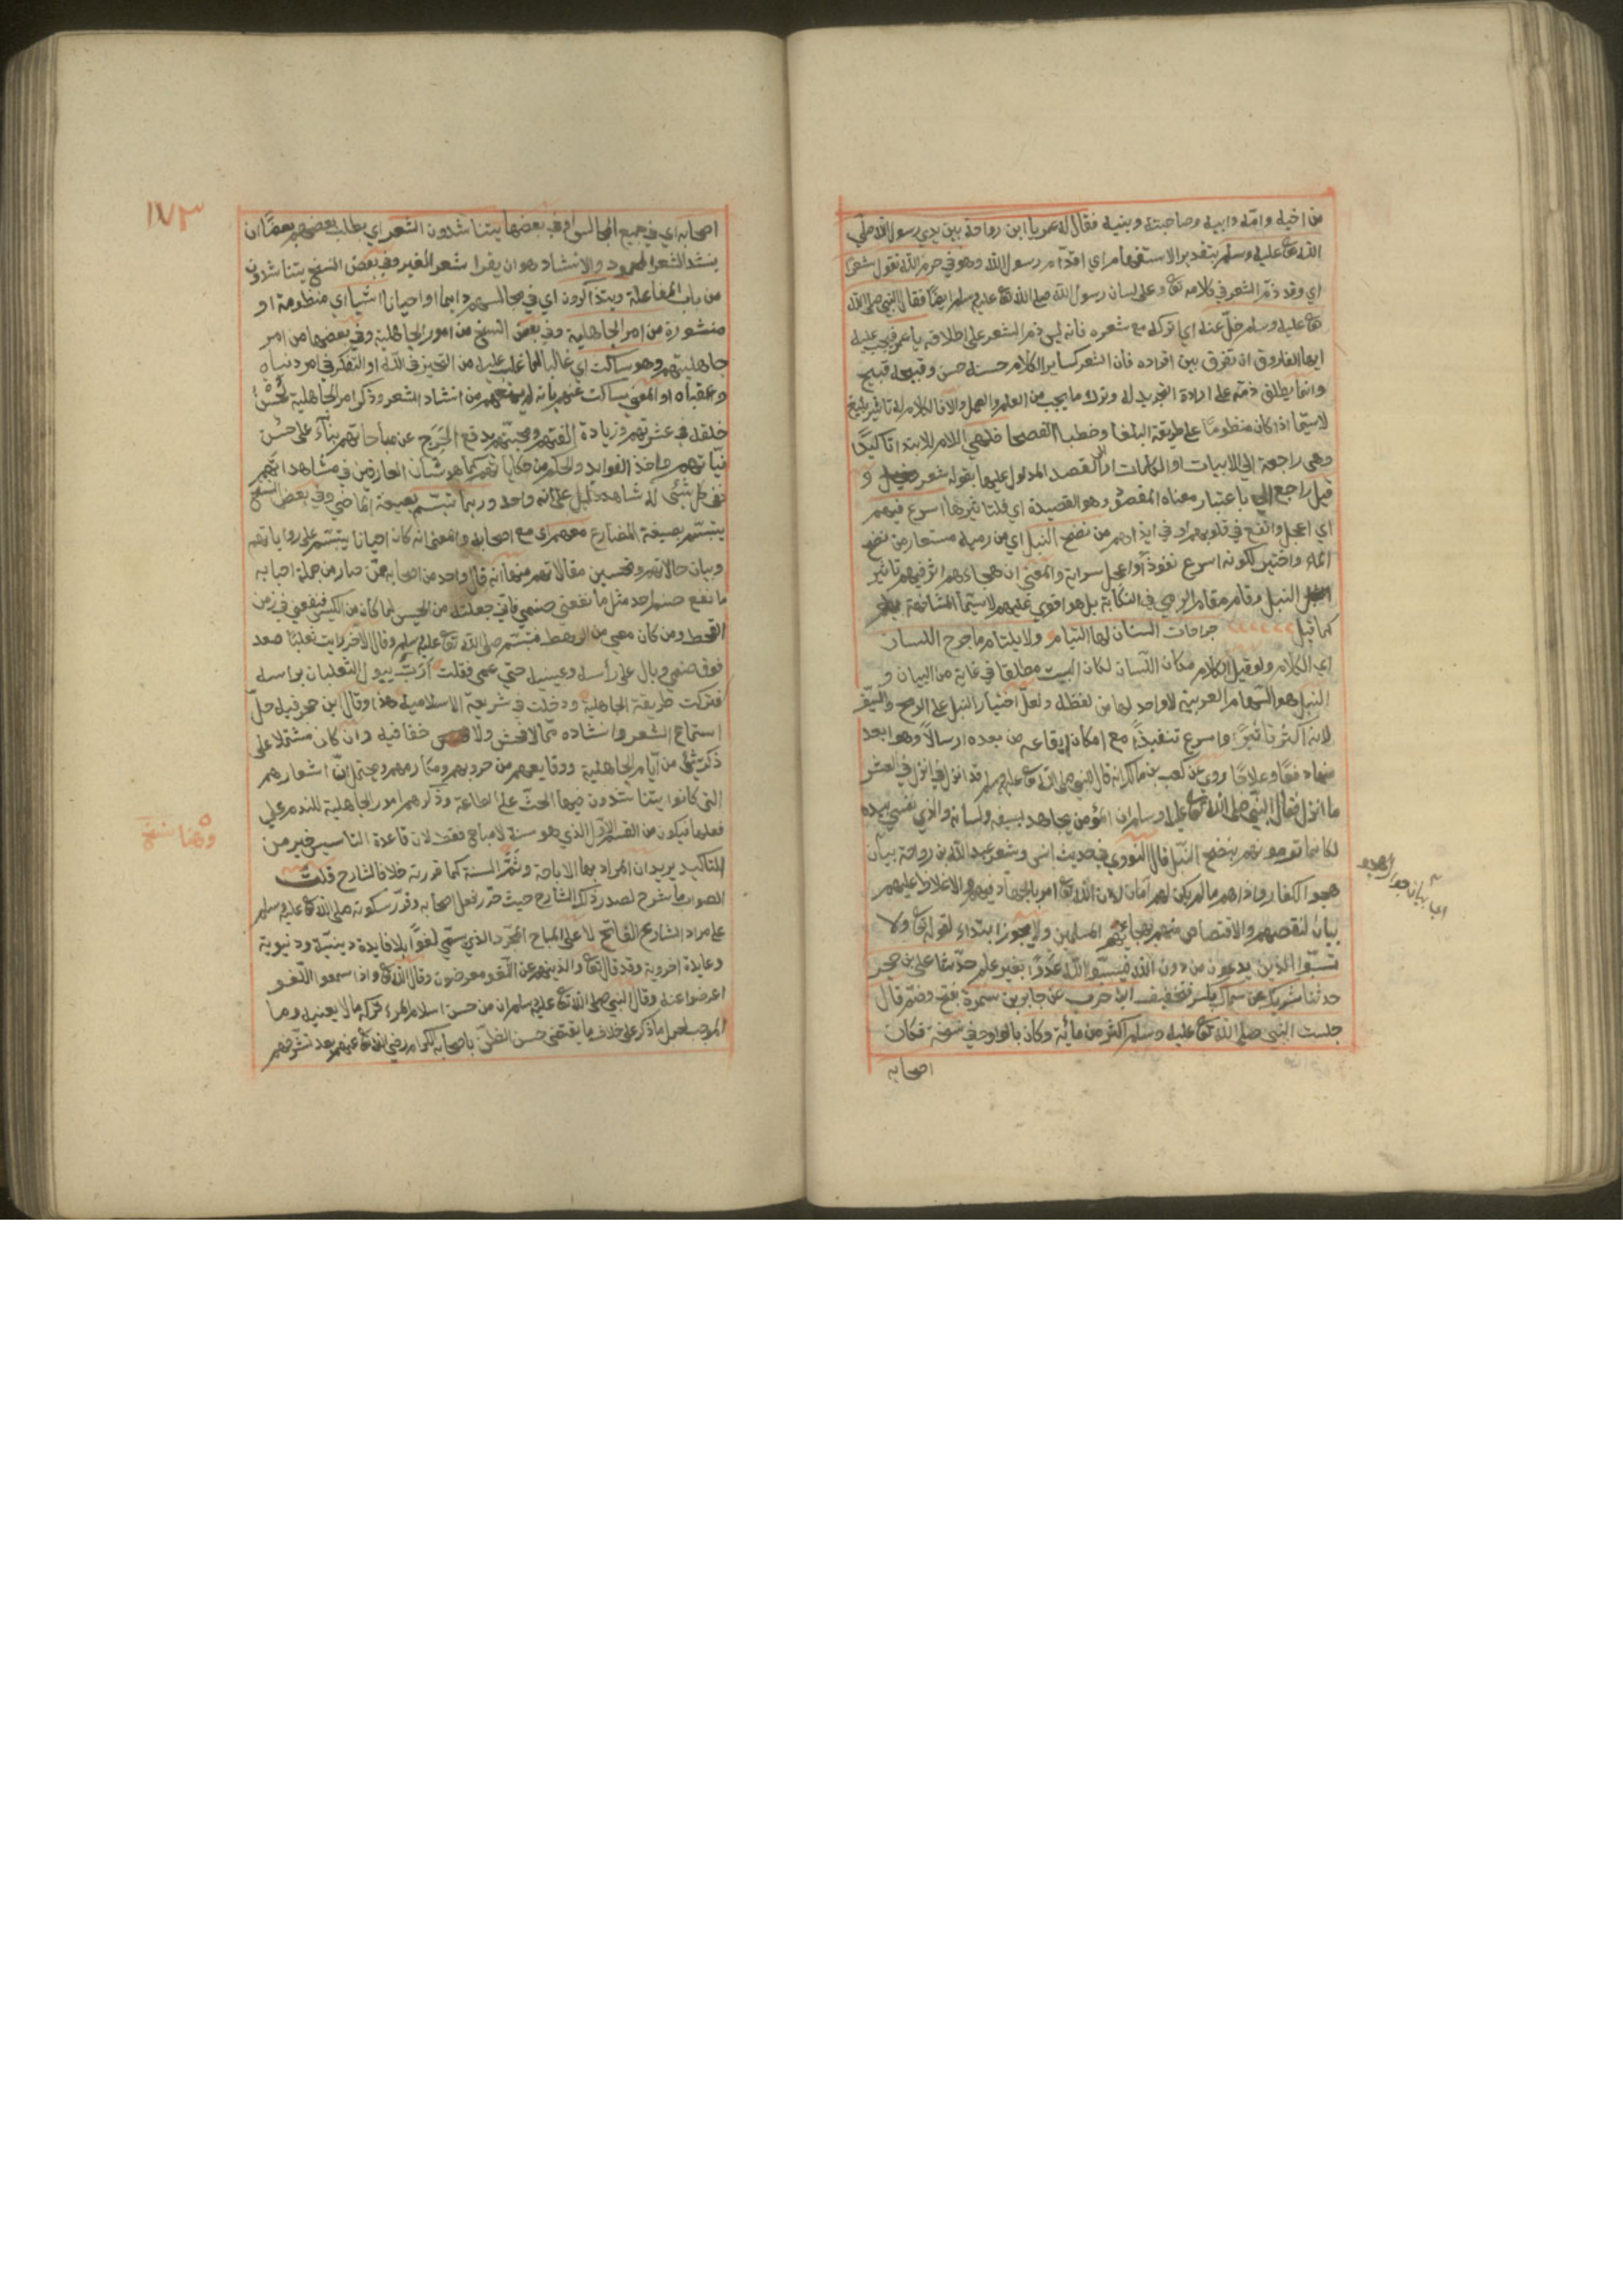 من اخيه وامّه وابيه وصاحبته وبنيه فقال له عمر يا ابن رواحة بين يدي رسول الله صلي
الله تعا عليه وسلم بتقدير الاستفهام اي اقدّام رسول الله وهو في حرم الله تقول شعرًا
اي وقد ذمّ الشعر في كلامه تعا وعلى لسان رسول الله صلي الله تعا عليه وسلم ايضًا فقال النبي صلي الله
تعا عليه وسلم خلّ عنه اي اتركه مع شعره فانه ليس ذم الشعر على اطلاقه يا عمر فيجب عليك
ايها الفاروق ان تفرق بين افراده فان الشعر كساير الكلام حسنه حسن وقبيحه قبيح
وانما يطلق ذمّه على ارادة التجريد له وترك ما يجب من العلم والعمل والا فالكلام له تاثير بليغ
لاسيّما اذا كان منظومًا على طريقة البلغا وخطبا الفصحا فلهي اللام للابتدا تاكيدًا
وهي راجعة الي الابيات او الكلمات او القصد المدلول عليها بقوله شعر و
قيل راجع الي باعتبار معناه المقصود وهو القصيدة اي فلتاثيرها اسرع فيهم
اي اعجل وانفع في قلوبهم او في ايذاهم من نضح النبل اي من رميه مستعار من نضح
الماء واختير لكونه اسرع نفوذًا واعجل سراية والمعني ان هجاءهم اثر فيهم تاثير
النبل وقام مقام الرمي في النكاية بل هو اقوي عليهم لاسيّما المشافهة
كما قيل جراحات السنان لها التيام ولا يلتام ما جرح اللسان
اي الكلام ولو قيل الكلام مكان اللسان لكان البيت مطلقا في غاية من البيان و
النبل هو السهام العربية لا واحد لها من لفظه ولعلّ اختيار النبل على الرمح والسيف
لانه اكثر تاثيرًا واسرع تنفيذًا مع امكان ايقاعه من بعده ارسالًا وهو ابعد
منهما دفعًا وعلاجًا روي عن كعب بن مالك انه قال للنبي صلي الله تعا عليه وسلم قد انزل في الشعر
ما انزل فقال النبي صلي الله تعا عليه وسلم ان المؤمن يجاهد بسيفه ولسانه والذي نفسي بيده
لكانما ترمونهم بنضح النبل قال النووي في حديث انس وشعر عبد الله بن رواحة بيان
هجو الكفار واذاهم ما لم يكن لهم امان لان الله تعا امر بالجهاد فيهم والاغلاظ عليهم
بيان لنقصهم والانتصار منهم بهجائهم المسلمين ولا يجوز ابتداء لقوله تعا ولا
تسبّوا الذين يدعون من دون الله فيسبّوا الله عَدْوًا بغير علم حدّثنا علي بن حجر
حدثنا شريك عن سماك بكسر فتخفيف اخره حرف عن جابر بن سمرة بفتح وضم قال
جلست النبي صلي الله تعا عليه وسلم اكثر من مائة وكان بالواو وفي نسخة فكان
اصحابه
اي بيان جواز هجو
١٧٣
اصحابه اي في جميع المجالس او في بعضها يتناشدون الشعر اي يطلب بعضهم بعضًا ان
ينشد الشعر والانشاد هو ان يقرا شعر الغير وفي بعض النسخ يتناشدون
من باب المفاعلة ويتذاكرون اي في مجالسهم دايما او احيانا اشيا اي منظومة او
منثورة من امر الجاهلية وفي بعض النسخ من امور الجاهلية وفي بعضها من امر
جاهليتهم وهو ساكت اي غالبا لما غلب عليه من التحيز في الله او التفكر في امر دنياه
وعقباه او المعني ساكت عنهم بانه لم يمنعهم من انشاد الشعر وذكر امر الجاهلية لحُسْن
خلقه في عشرتهم وزيادة الفتهم ومحبتهم بدفع الحَرَج عن مباحاتهم بناءً على حُسْن
نيّاتهم واخذ الفوايد والحكم من حكاياتهم كما هو شان العارفين في مشاهداتهم
ففي كل شئ له شاهد دليل على انه واحد وربما تبسّم بصيغة الماضي وفي بعض النسخ
يتبسّم بصيغة المضارع معهم اي مع اصحابه والمعني انه كان احيانا يتبسّم على رواياتهم
وبيان حالاتهم وتحسين مقالاتهم منها انه قال واحد من اصحابه ممّن صار من جملة احبابه
ما نفع صنم احد مثل ما نفعني صنمي فاني جعلته من الحيس فنفعني في زمن
القحط ومن كان معي من الرهط فتبسّم صلي الله تعا عليه وسلم وقال الاخر رايت ثعلبًا صعد
فوق صنمي وبال على رأسه وعينيه حتي عمي فقلت أرَبٌّ يبول الثعلبان براسه
فتركت طريقة الجاهلية ودخلت في شريعة الاسلامية هذا وقال ابن حجر فيه حلّ
استماع الشعر وانشاده ممّا لا فحش ولا خنا فيه وان كان مشتملا على
ذكر شئ من ايّام الجاهلية ووقايعهم من حروبهم ومكارمهم ويحتمل انّ اشعارهم
التي كانوا يتناشدون فيها الحثّ على الطاعة وذكرهم امور الجاهلية للندم على
فعلها فيكون من القسم الاوّل الذي هو سنة لا مباح فقط لان قاعدة التاسيس خير من
التاكيد يريد ان المراد بها الاباحة وثَمَّ السنة كما قررته خلافا لشارح قلت
الصواب ما شرح لصدر ذلك الشارح حيث حرّر فعل اصحابه وقرّر سكوته صلي الله تعا عليه وسلم
على مراد الشارح الفاتح لا على المباح المجرّد الذي سمّي لغوًا بلا فايدة دينيّة ودنيوية
وعايدة اخروية وقد قال تعا والذين هم عن اللّغو معرضون وقال الله تعا واذا سمعوا اللّغو
اعرضوا عنه وقال النبي صلي الله تعا عليه وسلم ان من حسن اسلام المرء تركه ما لا يعنيه وما
الموجب لحمل ما ذكر على خلاف ما يقتضي حسن الظنّ باصحابه الكرام رضي الله تعا عنهم بعد تشرّفهم